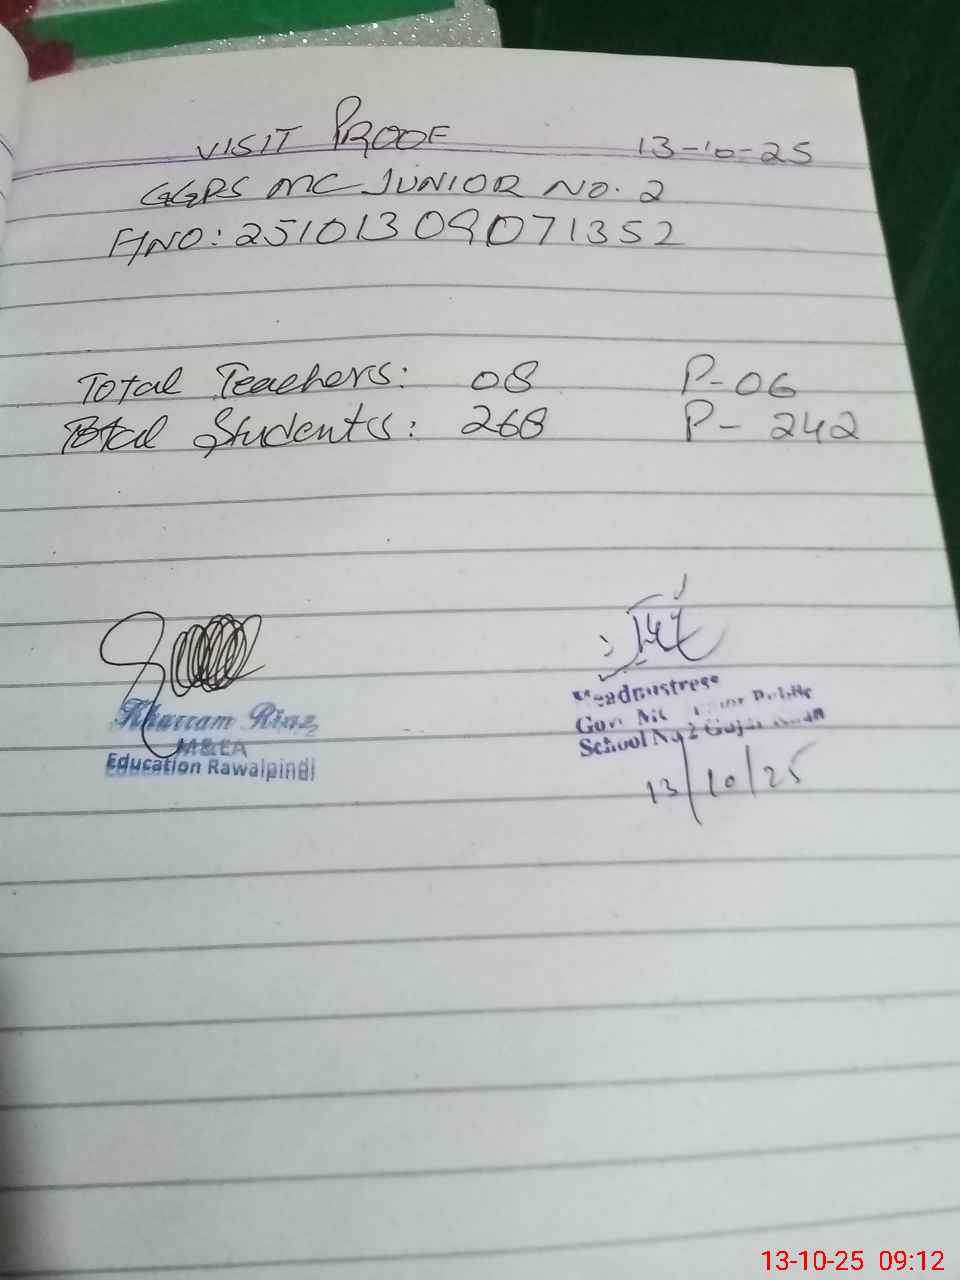 VISIT PROOF 13-10-25
GGPS MC JUNIOR NO. 2
F/NO: 25101309071352
Total Teachers: 08 P-06
Total Students: 268 P- 242
Khurram Riaz
M&EA
Education Rawalpindi
Headmistress
Gov. MC Junior Public
School No 2 Gujar Khan
13/10/25
13-10-25 09:12